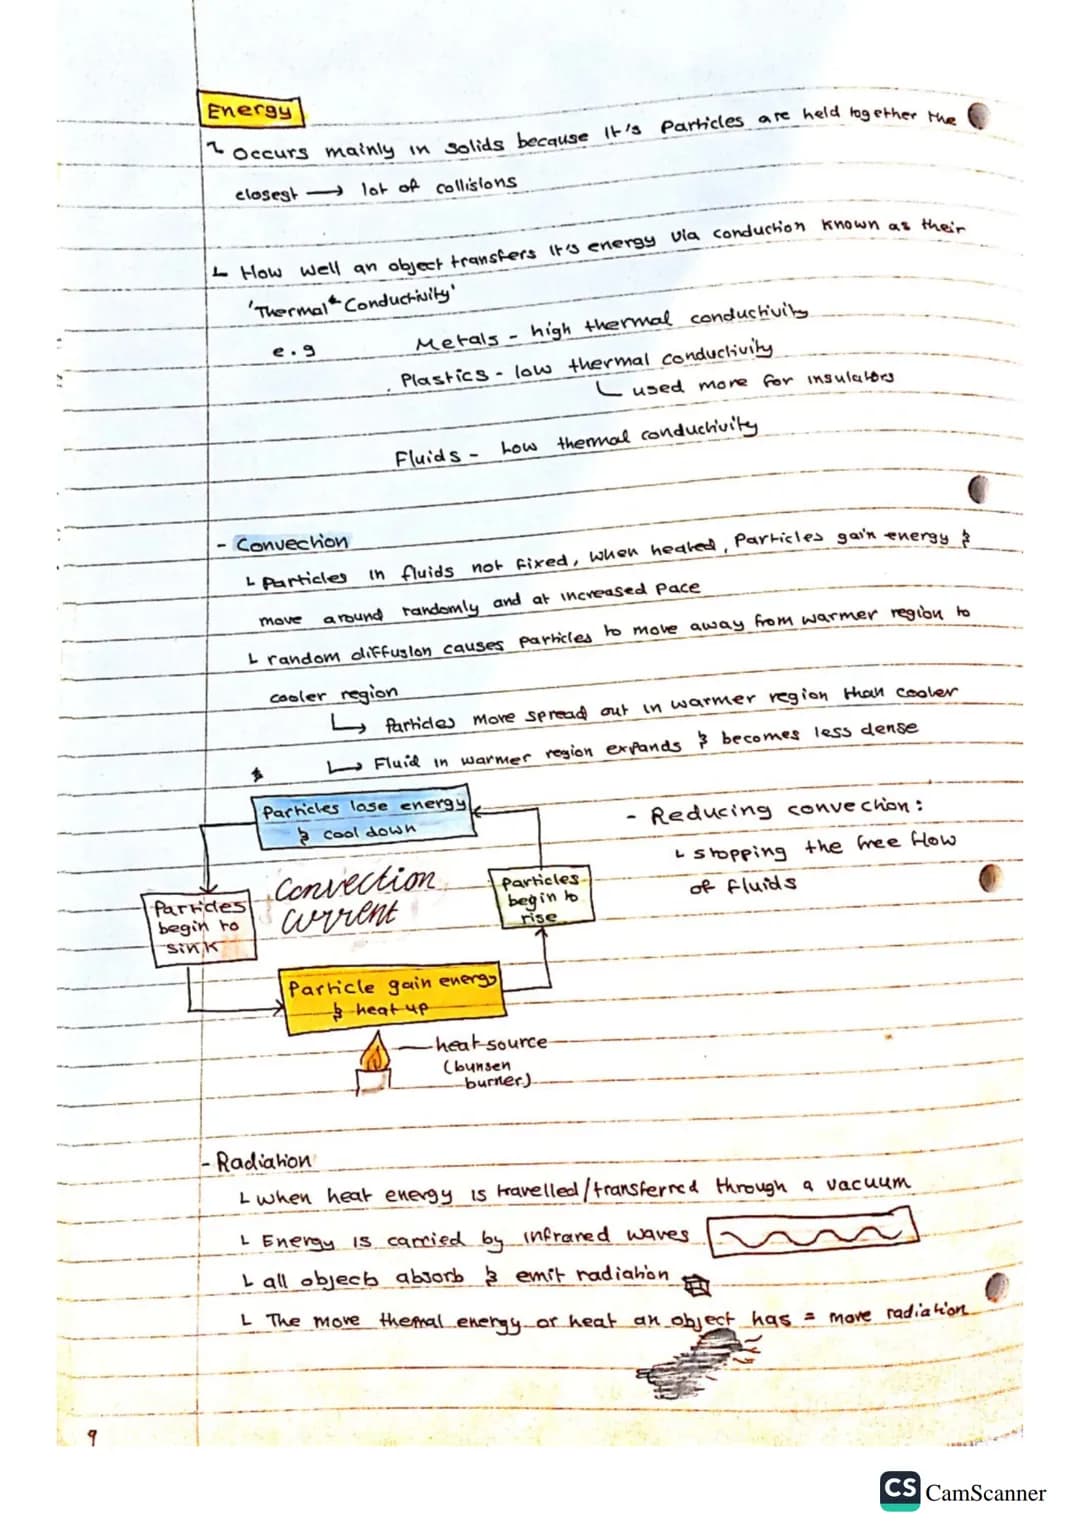 Energy
Occurs mainly in solids because It's Particles are held together the
closest → lot of collisions
How well an object transfers It's energy via conduction known as their
'Thermal Conductivity'
e.g Metals - high thermal conductivity
Plastics - low thermal conductivity
used more for insulators
Fluids - Low thermal conductivity
- Convection
Particles in fluids not fixed, when heated, Particles gain energy &
move around randomly and at increased Pace
random diffusion causes particles to move away from warmer region to
cooler region
↳ Particles more spread out in warmer region than cooler
↳ Fluid in warmer region expands & becomes less dense
Particles lose energy
& cool down
- Reducing convection:
stopping the free flow
of fluids
Particles
begin to
rise
Convection
current
Particles
begin to
sink
Particle gain energy
& heat up
heat source
(bunsen
burner)
- Radiation
when heat energy is travelled/transferred through a vacuum
Energy is carried by infrared waves
all objects absorb & emit radiation
The more themal energy or heat an object has = more radiation
9
CS CamScanner